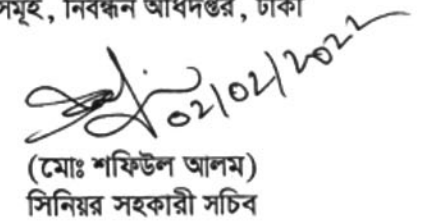 সমূহ, নিবন্ধন অধিদপ্তর, ঢাকা
০২/০২/২০২২
(মোঃ শফিউল আলম)
সিনিয়র সহকারী সচিব